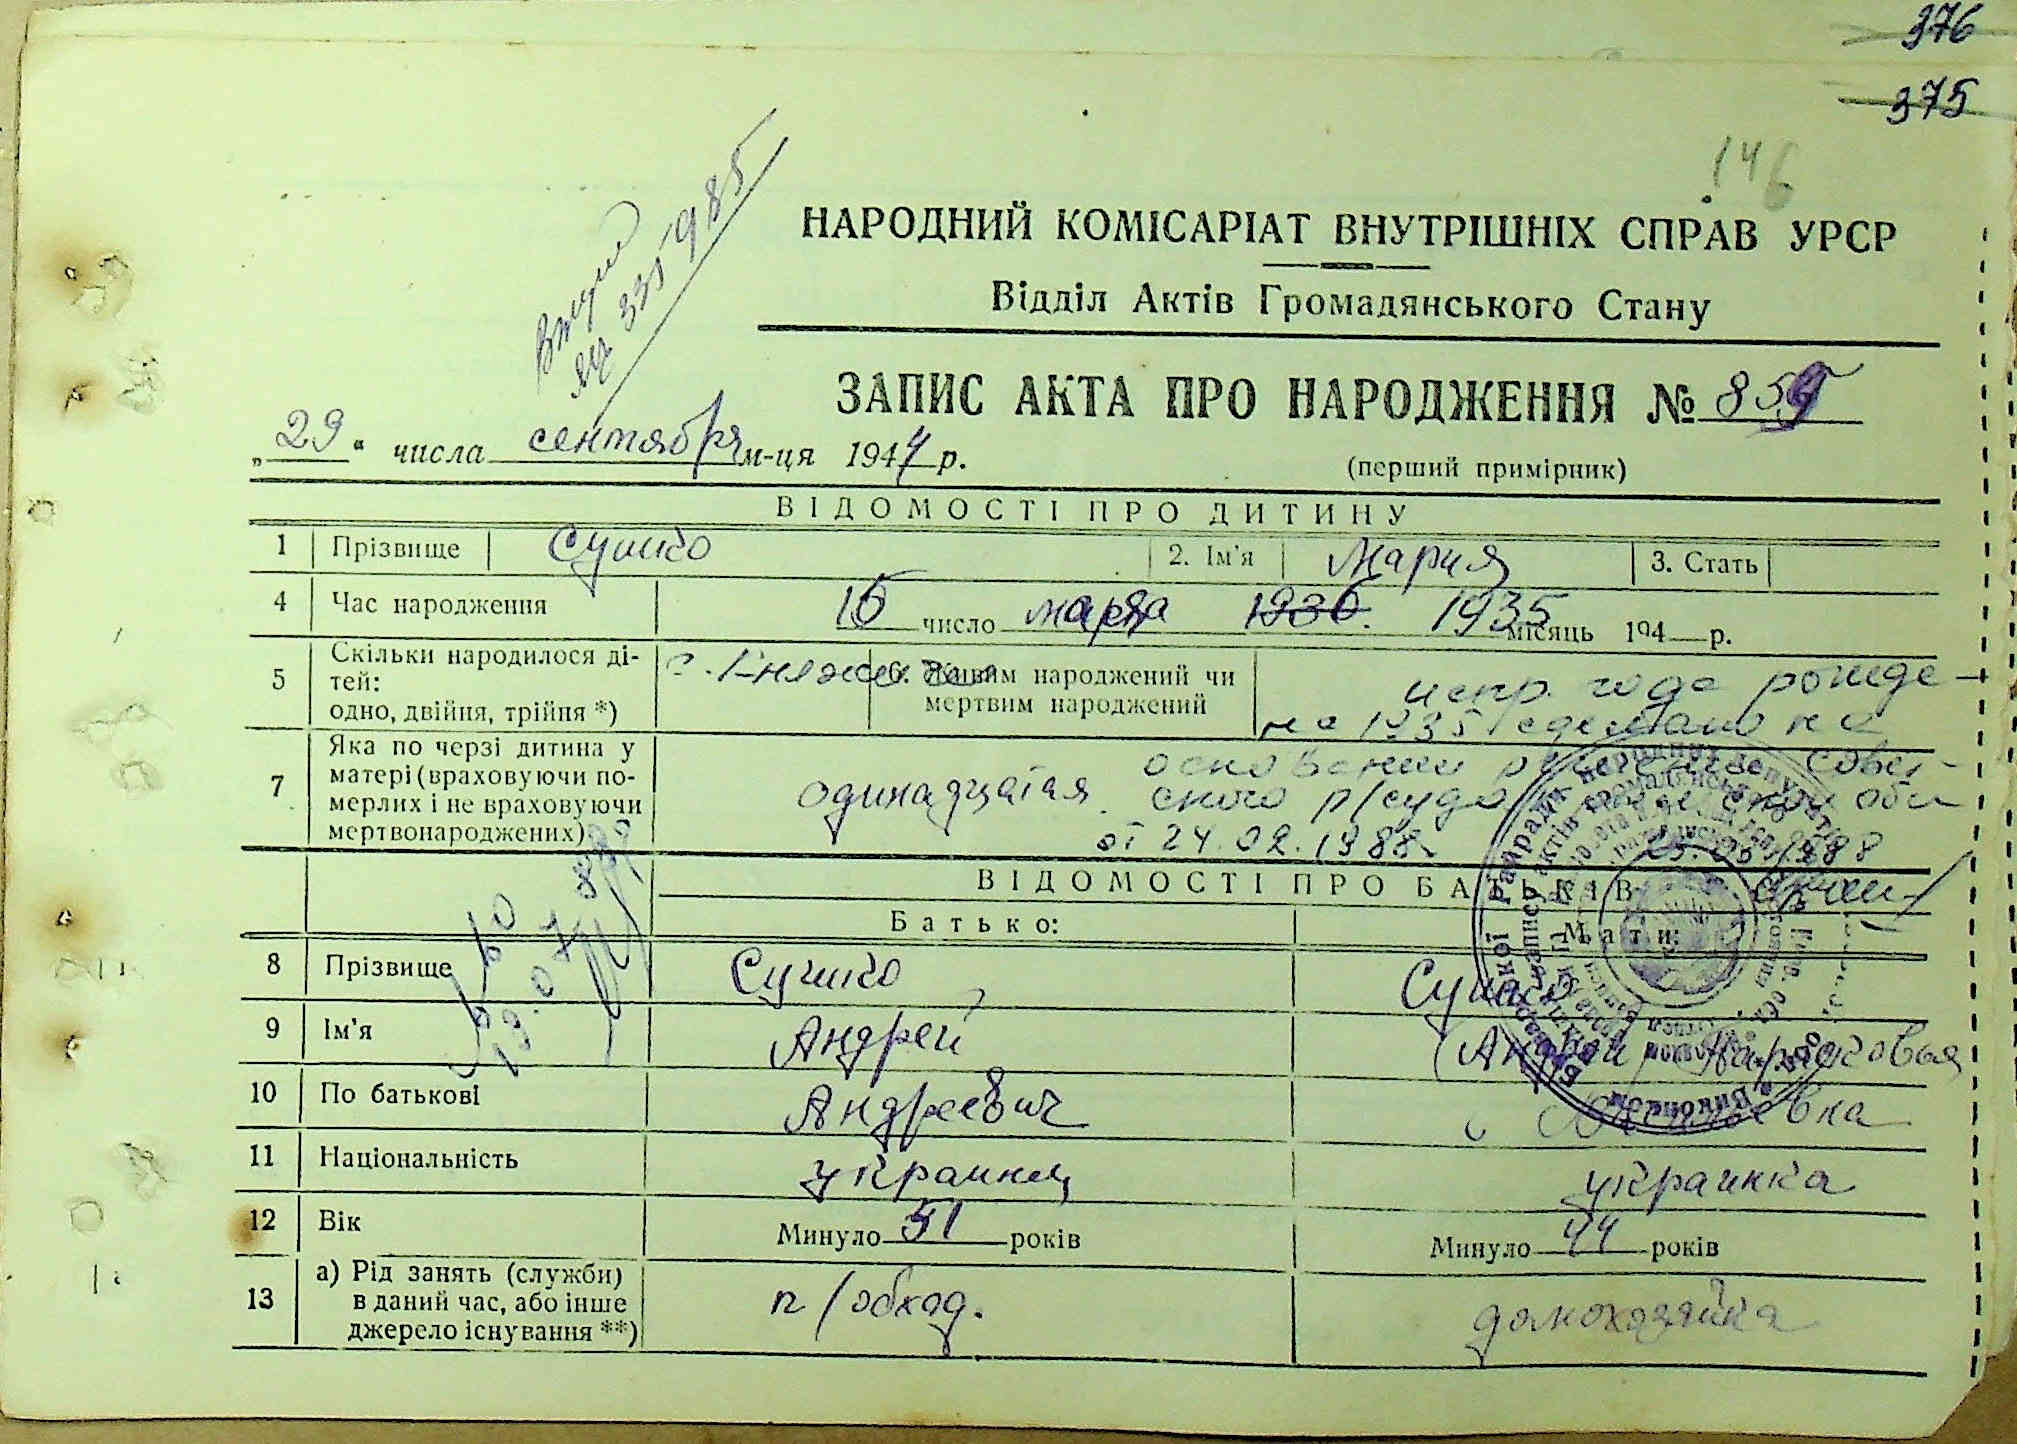 376
375
146
НАРОДНИЙ КОМІСАРІАТ ВНУТРІШНІХ СПРАВ УРСР
Відділ Актів Громадянського Стану
ЗАПИС АКТА ПРО НАРОДЖЕННЯ № 859
„29“ числа сентября м-ця 1944 р.
(перший примірник)
ВІДОМОСТІ ПРО ДИТИНУ
1 Прізвище Сушко 2. Ім'я Мария 3. Стать
4 Час народження 15 число марта 1936. 1935 місяць 194 р.
5 Скільки народилося ді-
тей:
одно, двійня, трійня *)
6. Живим народжений чи
мертвим народжений
испр. года рожде-
на 1935 сделано на
7 Яка по черзі дитина у
матері (враховуючи по-
мерлих і не враховуючи
мертвонароджених)
одинадцатая
основании решения
ского р/суда
от 24.02.1988
ВІДОМОСТІ ПРО БАТЬКІВ
Батько: Мати:
8 Прізвище Сушко Сушко
9 Ім'я Андрей
10 По батькові Андреевич
11 Національність украинец украинка
12 Вік Минуло 51 років Минуло 44 років
13 а) Рід занять (служби)
в даний час, або інше
джерело існування **)
п/обход. домохозяйка